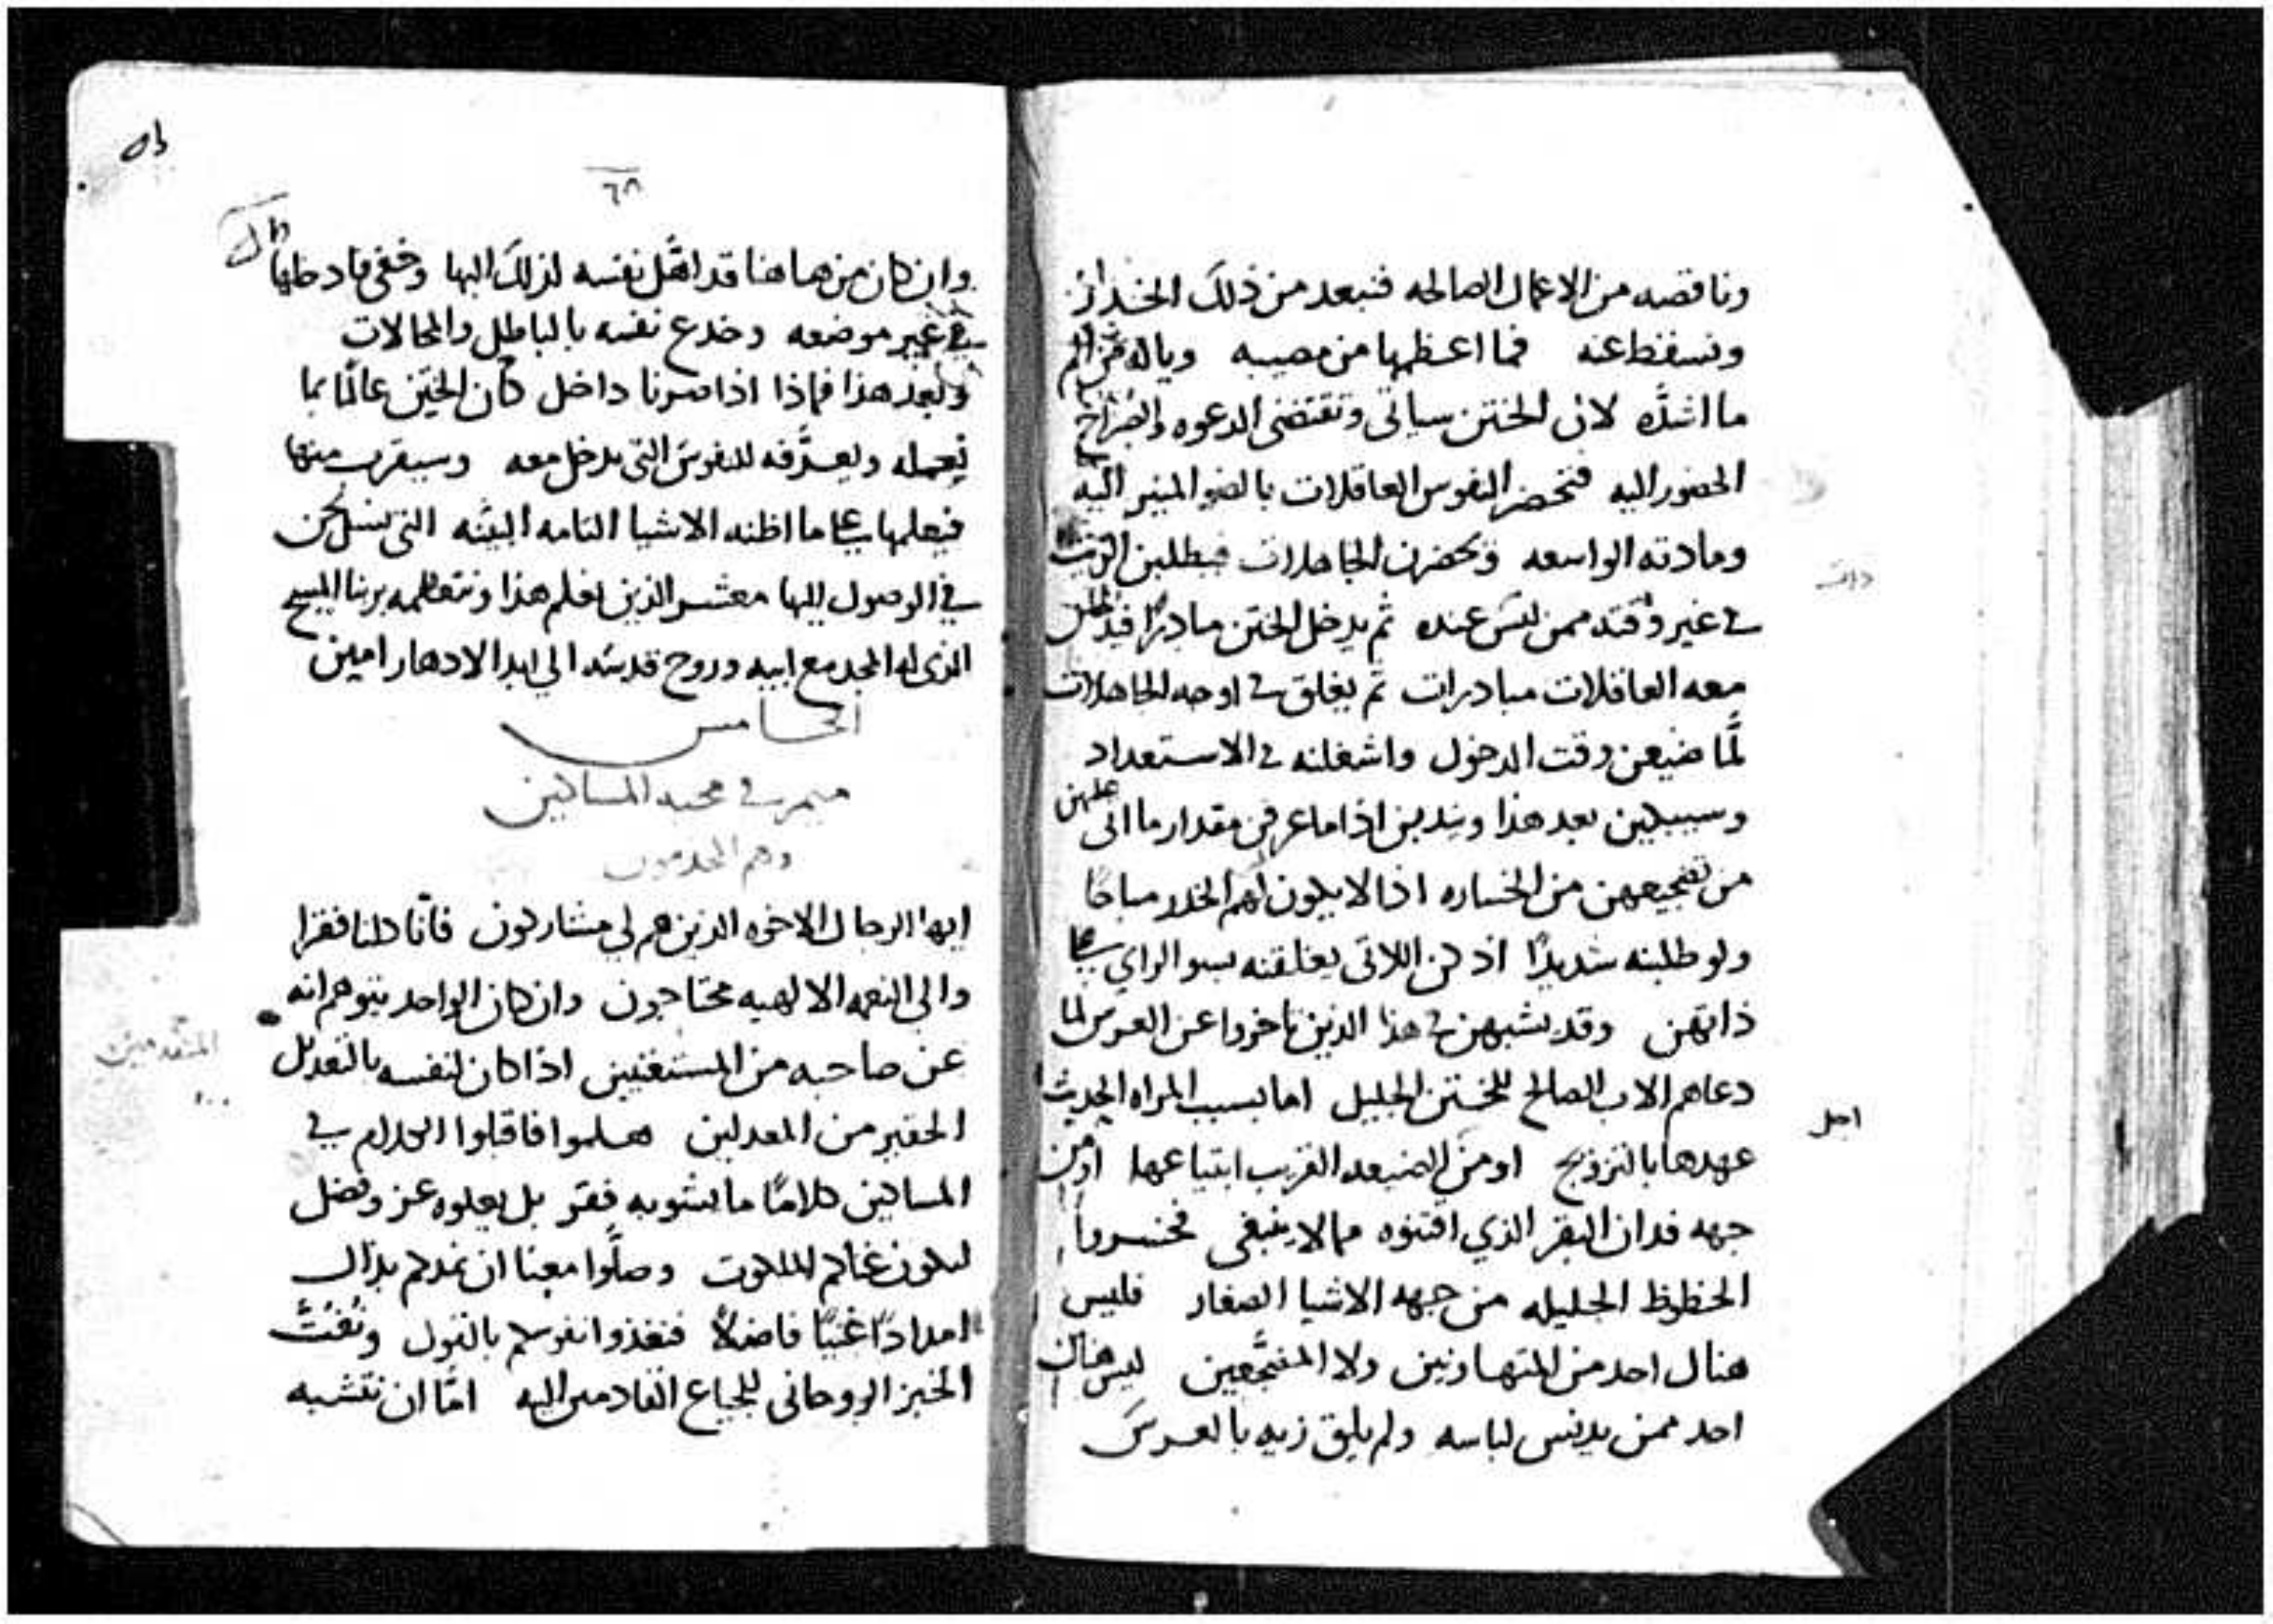 وناقصه من الاعمال الصالحه فتبعد من ذلك الخدر
ونسقط عنه فما اعظمها من مصيبه وياله من الم
ما اشده لان الختن سياتي وتقتضي الدعوه والصراخ
الحضور اليه فتحضر النفوس العاقلات بالضو المنير اليه
ومادته الواسعه وتحضرن الجاهلات فيطلبن الزيت
في غير وقته ممن ليس عنده ثم يدخل الختن مبادرا فيدخلن
معه العاقلات مبادرات ثم يغلق في اوجه الجاهلات
لما ضيعن وقت الدخول واشغلنه في الاستعداد
وسيبكين بعد هذا ويندبن اذا ما عرفن مقدار ما اتى عليهن
من تضجيعهن من الخساره اذا لا يكون لهم الخدر مباحا
ولو طلبنه شديدا اذ هن اللاتي يغلقنه بسو الراي على
ذاتهن وقد يشبهن في هذا الذين تاخروا عن العرس لما
دعاهم الاب الصالح للختن الجليل اما بسبب المراه الحديث
عهدها بالتزويج او من الضيعه القريب ابتياعها او من
جهه فدان البقر الذي اقتنوه مما لا ينبغي فخسروا
الحظوظ الجليله من جهه الاشيا الصغار فليس
هناك احد من المتهاونين ولا المضجعين ليس هناك
احد ممن يدنس لباسه ولم يلق زيه بالعرس
ذات
اجل
٦٨
وان كان من هاهنا قد اهل نفسه لذلك البها وخفي
في غير موضعه وخدع نفسه بالباطل والمحالات
وبعد هذا فماذا اذا صرنا داخل كان الختن عالما بما
يعمله ويعرفه للنفوس التي تدخل معه وسيقرب منها
فيعلمها على ما اظنه الاشيا التامه البينه التي
في الوصول اليها معشر الذين نعلم هذا ونتعلمه بربنا المسيح
الذي له المجد مع ابيه وروح قدسه الي ابد الادهار امين
الخامس
ميمر في محبه المساكين
وهم المجدمون
ايها الرجال الاخوه الذين هم لي مشاركون فانا كلنا فقرا
والى النعمه الالهيه محتاجون وان كان الواحد يتوهم انه
عن صاحبه من المستغنين اذا كان لنفسه بالتعديل
الحقير من المعدلين هلموا فاقبلوا الكلام في
المساكين كلاما ما يشوبه فقر بل يعلوه عز وفضل
ليكون غناكم الملكوت وصلوا معنا ان نمدكم بذاك
امدادا غنيا فاضلا فنغذوا نفوسكم بالقول ونفت
الخبز الروحاني للجياع القادمين اليه اما ان نتشبه
المتقدمين